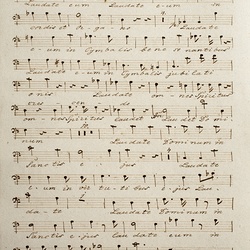 Laudate eum in
cordis et organo Laudate
eum in Cymbalis bene sonantibus
Laudate eum in Cymbalis jubilati
onis Laudate omnes Spiritus
omnes Spiritus laudet Laudet Domi
num Laudate Dominum in
Sanctis ejus Laudate
eum in virtutibus ejus Lau
date Laudate Dominum in
Sanctis ejus Laudate eum in